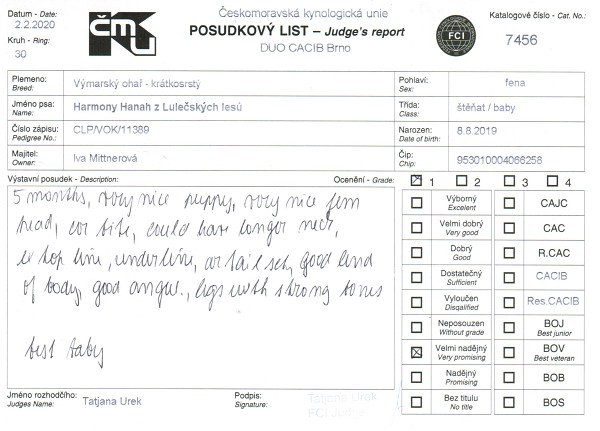 Datum - Date:
2.2.2020
Kruh - Ring:
30
ČMKU
Českomoravská kynologická unie
POSUDKOVÝ LIST – Judge's report
DUO CACIB Brno
FCI
Katalogové číslo - Cat. No.:
7456
Plemeno: Breed: Výmarský ohař - krátkosrstý
Pohlaví: Sex: fena
Jméno psa: Name: Harmony Hanah z Lulečských lesú
Třída: Class: štěňat / baby
Číslo zápisu: Pedigree No.: CLP/VOK/11389
Narozen: Date of birth: 8.8.2019
Majitel: Owner: Iva Mittnerová
Čip: Chip: 953010004066258
Výstavní posudek - Description:
Ocenění - Grade: 1 2 3 4
5 months, very nice puppy, very nice fem
head, cor bite, could have longer neck,
top line, underline, cor tail set, good kind
of body, good angul., legs with strong bones
best baby
Výborný Excelent
CAJC
Velmi dobrý Very good
CAC
Dobrý Good
R.CAC
Dostatečný Sufficient
CACIB
Vyloučen Disqalified
Res.CACIB
Neposouzen Without grade
BOJ Best junior
Velmi nadějný Very promising
BOV Best veteran
Nadějný Promising
BOB
Bez titulu No title
BOS
Jméno rozhodčího: Judges Name: Tatjana Urek
Podpis: Signature: Tatjana Urek
FCI Judge